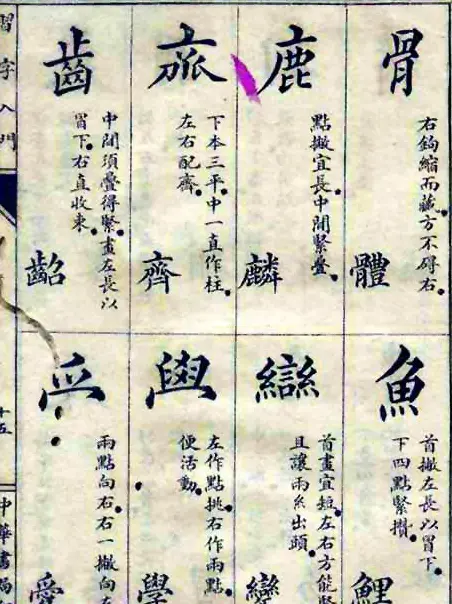 骨
右鉤縮而藏。方不碍右。
體
鹿
點撇宜長。中間緊疊。
麟
下本三平。中一直作柱。
左右配齊。
齊
齒
中間須疊得緊。畫左長以
冒下。右直收束。
齠
魚
首撇左長以冒下。
下四點緊攢。
鯉
䜌
首畫宜短。左右方能緊
且讓兩糸出頭。
左作點挑。右作兩點。
便活動。
學
兩點向右。右一撇向左
習字入門
十五
中華書局